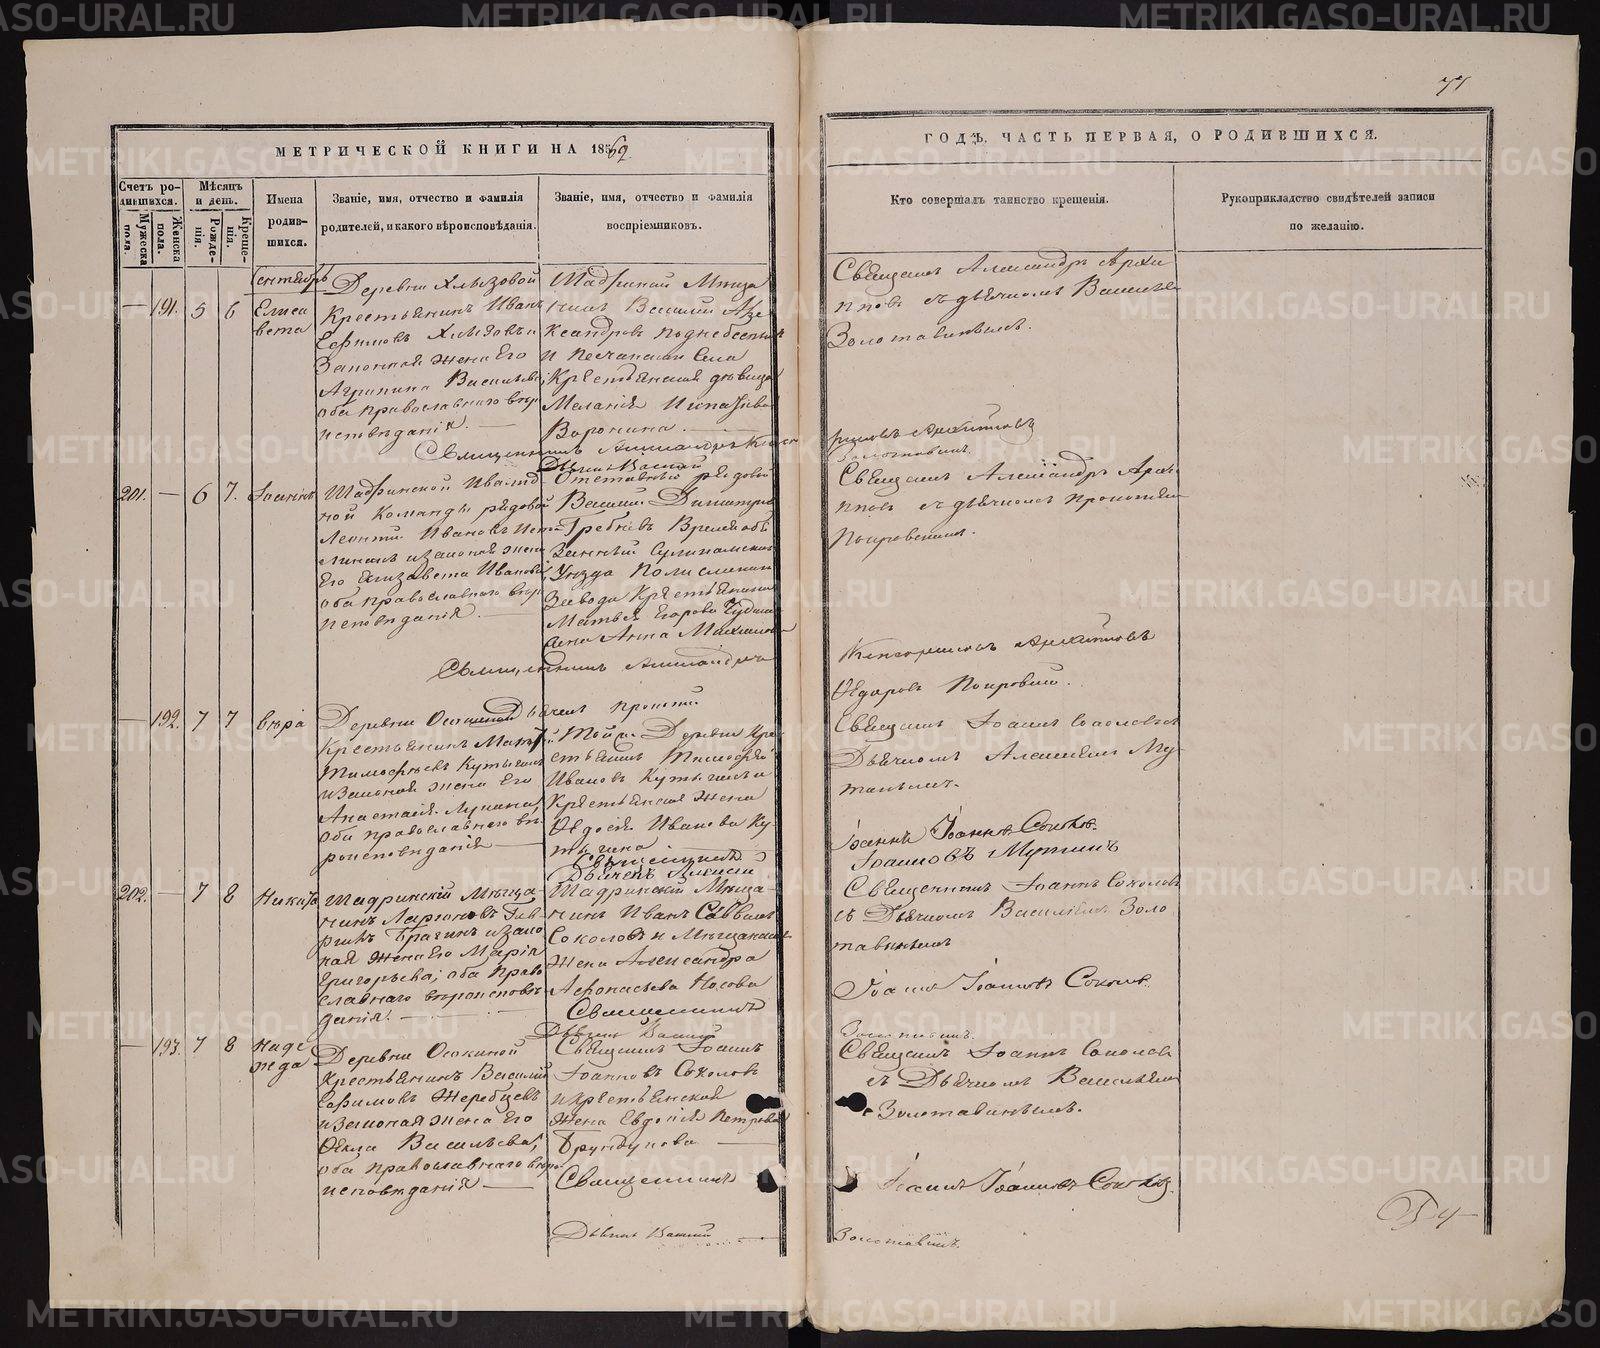 77
МЕТРИЧЕСКОЙ КНИГИ НА 1862
ГОДЪ, ЧАСТЬ ПЕРВАЯ, О РОДИВШИХСЯ.
Счетъ родившихся.
Мужеска пола.
Женска пола.
Мѣсяцъ и день.
Рожденія.
Крещенія.
Имена родившихся.
Званіе, имя, отчество и фамилія родителей, и какого вѣроисповѣданія.
Званіе, имя, отчество и фамилія воспріемниковъ.
Кто совершалъ таинство крещенія.
Рукоприкладство свидѣтелей записи по желанію.
Сентябрь
— 191. 5 6
Елисавета
Деревни Хлызовой
Крестьянинъ Иванъ
Ефимовъ Хлызовъ и
Законная жена Его
Агрипина Васильева,
оба православнаго вѣро
исповѣданія. —
Шадринскій Мѣща
нинъ Василій Але
ксандровъ Поднебесный
и Песчанскаго Села
Крестьянская дѣвица
Меланія
Воронина. —
Священникъ Александръ
Дьячекъ Василій
Священникъ Александръ Архи
пповъ съ дьячкомъ Василіем
Золотавинымъ.
201. — 6 7. Іоаннъ
Шадринской Инвалид
ной Команды рядовой
Леонтій Ивановъ
и законная жена
Его Елизавета Иванова,
оба православнаго вѣро
исповѣданія. —
Отставной рядовой
Василій Димитріев
Гребневъ
Уѣзда
Завода Крестьянина
Матвея Егорова
жена Анна Михайлова
Священникъ Александръ
Дьячекъ Прокопій
Священникъ Александръ Архи
пповъ съ дьячкомъ Прокопіем
Покровскимъ.
Архипповъ
Ѳедоровъ Покровскій.
— 192. 7 7 Вѣра
Деревни Осокиной
Крестьянинъ Матвѣй
Тимофѣевъ Кутыгинъ
и Законная жена Его
Анастасія Лукина,
оба православнаго вѣ
роисповѣданія —
Тойже Деревни Кре
стьянинъ Тимофей
Ивановъ Кутыгинъ и
Крестьянская жена
Ѳедосія Иванова Ку
тыгина
Священникъ
Дьячекъ Алексій
Священникъ Іоаннъ Соколовъ съ
Дьячкомъ Алексіемъ Му
тинымъ.
Іоаннъ Іоанновъ Соколовъ.
Іоанновъ Мутинъ
202. — 7 8 Никита
Шадринскій Мѣща
нинъ Ларіоновъ Гав
рилъ Брагинъ и закон
ная жена Его Марія
Григорьева; оба право
славнаго вѣроисповѣ
данія. —
Шадринскій Мѣща
нинъ Иванъ Саввинъ
Соколовъ и Мѣщанская
Жена Александра
Афонасьева Носова
Священникъ
Дьячекъ Василій
Священникъ Іоаннъ Соколовъ
съ Дьячкомъ Василіемъ Золо
тавинымъ
Іоаннъ Іоанновъ Соколовъ.
— 193. 7 8
Надежда
Деревни Осокиной
Крестьянинъ Василій
Ефимовъ Жеребцевъ
и Законная жена Его
Ѳекла Васильева,
оба православнаго вѣро
исповѣданія —
Священникъ Іоаннъ
Іоанновъ Соколовъ
и Крестьянская
Жена Евдокія Петрова
Брундукова —
Священникъ
Дьячекъ Василій
Священникъ Іоаннъ Соколовъ
съ Дьячкомъ Василіемъ
Золотавинымъ.
Іоаннъ Іоанновъ Соколовъ.
Золотавинъ.
METRIKI.GASO-URAL.RU